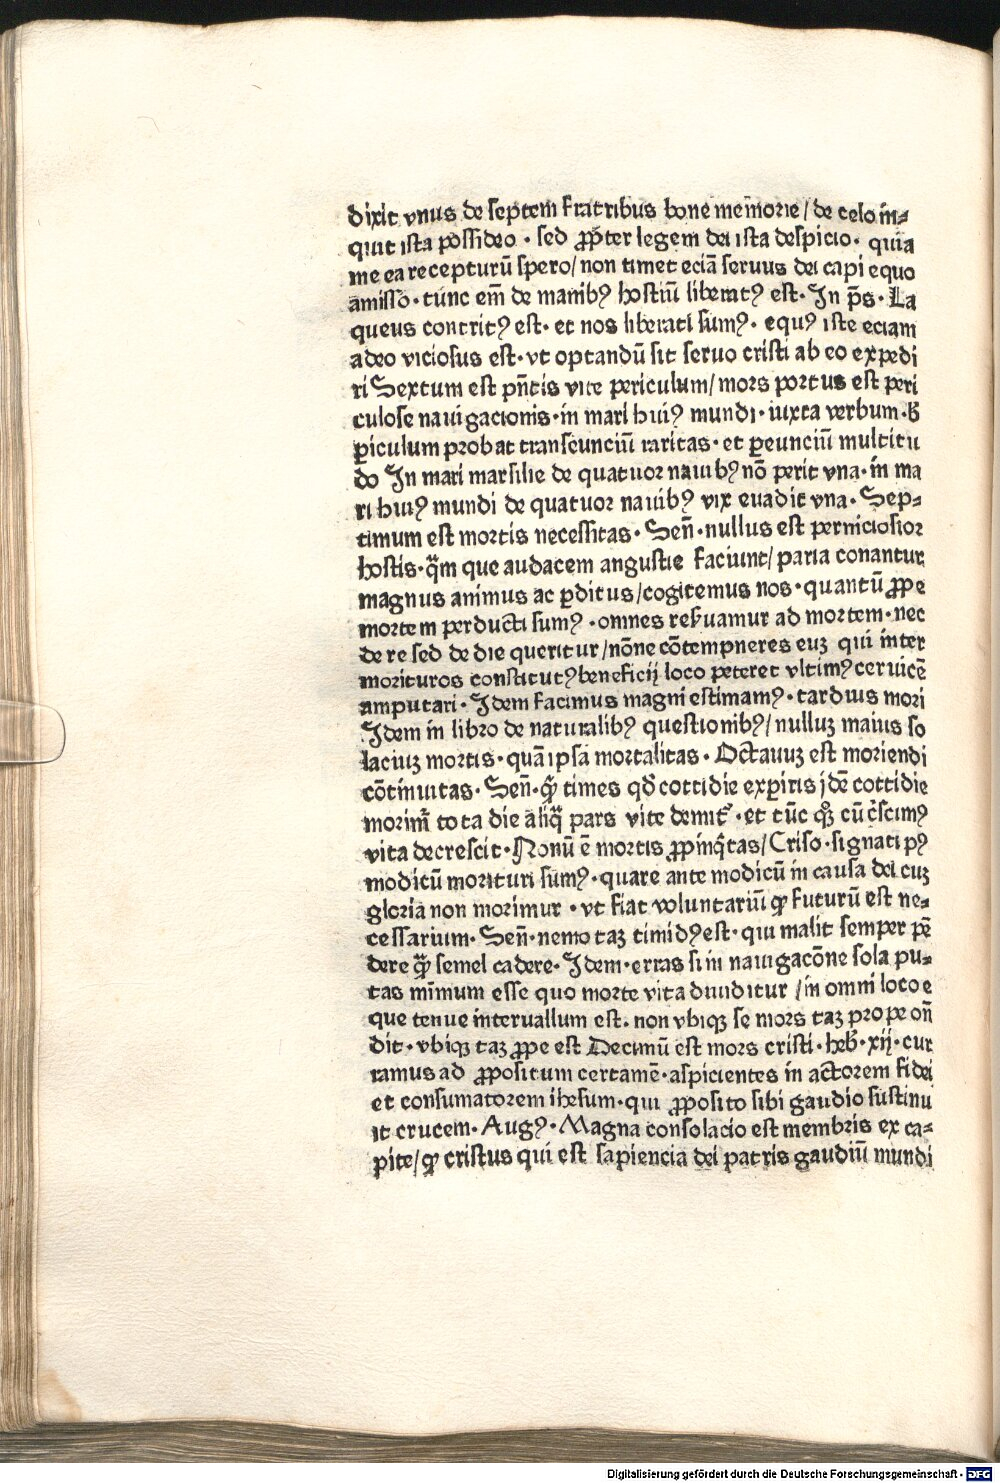 dixit vnus de septem fratribus bone memorie/ de celo in⸗
quit ista possideo · sed ꝓpter legem dei ista despicio· quia
me ea recepturū spero/ non timet eciā seruus dei capi equo
amisso· tunc em̄ de manibꝰ hostiū liberatꝰ est· In p̄s· La
queus contritꝰ est· et nos liberati sumꝰ· equꝰ iste eciam
adeo viciosus est· vt optandū sit seruo cristi ab eo expedi
ri Sextum est pn̄tis vite periculum/ mors portus est peri
culose nauigacionis· in mari huiꝰ mundi· iuxta verbum· B̄
ꝑiculum probat transeunciū raritas· et ꝑeunciū multitu
do In mari marsilie de quatuor nauibꝰ nō perit vna· in ma
ri huiꝰ mundi de quatuor nauibꝰ vix euadit vna· Sep⸗
timum est mortis necessitas· Sen̄· nullus est perniciosior
hostis· q̄m que audacem angustie faciunt/ paria conantur
magnus animus ac ꝑditus/ cogitemus nos· quantū ꝓpe
mortem perducti sumꝰ · omnes reẜuamur ad mortem· nec
de re sed de die queritur/ nōne cōtempneres euꝫ qui inter
morituros constitutꝰ beneficij loco peteret vltimꝰ ceruicē
amputari· Idem facimus magni estimamꝰ· tardius mori
Idem in libro de naturalibꝰ questionibꝰ/ nulluꝫ maius so
laciuꝫ mortis· quā ipsa mortalitas· Octauuꝫ est moriendi
cōtinuitas· Sen̄· qͣ times qd̄ cottidie exꝑiris idē cottidie
morimͬ tota die aliqͣ pars vite demitͬ · et tūc qͦꝫ cū cͥscimꝰ
vita decrescit· Nonū ē mortis ꝓpinqͥtas/ Criso· signati pꝰ
modicū morituri sumꝰ· quare ante modicū in causa dei cuꝫ
gloria non morimur · vt fiat voluntariū ꝙ futurū est ne⸗
cessarium· Sen̄· nemo taꝫ timidꝰ est· qui malit semper pē
dere qͣꝫ semel cadere· Idem· erras si in nauigacōne sola pu⸗
tas mīmum esse quo morte vita diuiditur /in omni loco e
que tenue interuallum est· non vbiqꝫ se mors taꝫ prope on̄
dit· vbiqꝫ taꝫ ꝓpe est Decimū est mors cristi· heb̄· xij· cur
ramus ad ꝓpositum certamē· aspicientes in actorem fidei
et consumatorem ihesum· qui ꝓposito sibi gaudio sustinu
it crucem· Augꝰ· Magna consolacio est membris ex ca⸗
pite/ ꝙ cristus qui est sapiencia dei patris gaudiū mundi
Digitalisierung gefördert durch die Deutsche Forschungsgemeinschaft · DFG